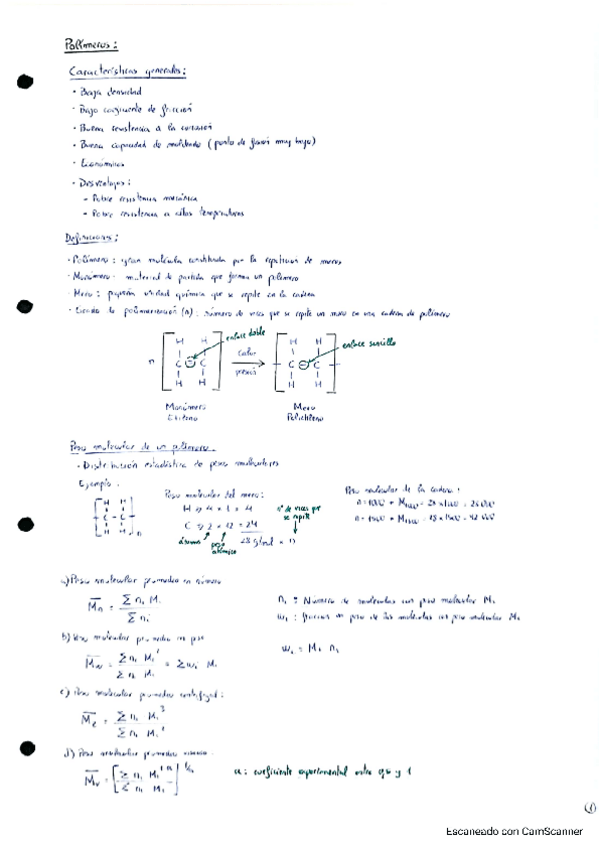 Polímeros:
Características generales:
· Baja densidad
· Bajo coeficiente de fricción
· Buena resistencia a la corrosión
· Buena capacidad de moldeado (punto de fusión muy bajo)
· Económicos
· Desventajas:
- Pobre resistencia mecánica
- Pobre resistencia a altas temperaturas
Definiciones:
· Polímero: gran molécula constituida por la repetición de meros
· Monómero: material de partida que forma un polímero
· Mero: pequeña unidad química que se repite en la cadena
· Grado de polimerización (n): número de veces que se repite un mero en una cadena de polímero
enlace doble
enlace sencillo
H H
n C = C
H H
Calor
presión
H H
C - C
H H
Monómero
Etileno
Mero
Polietileno
Peso molecular de un polímero
· Distribución estadística de pesos moleculares
Ejemplo:
H H
C - C
H H
n
Peso molecular del mero:
H → 4 × 1 = 4
C → 2 × 12 = 24
28 g/mol × n
nº de veces que
se repite
átomos
peso
atómico
Peso molecular de la cadena:
a) Peso molecular promedio en número
M̄n = Σ ni Mi / Σ ni
ni : Número de moléculas con peso molecular Mi
wi : fracción en peso de las moléculas con peso molecular Mi
b) Peso molecular promedio en peso
M̄w = Σ ni Mi² / Σ ni Mi = Σ wi Mi
wi = Mi ni
c) Peso molecular promedio centrífugo:
d) Peso molecular promedio viscoso:
a: coeficiente experimental entre 0,5 y 1
①
Escaneado con CamScanner